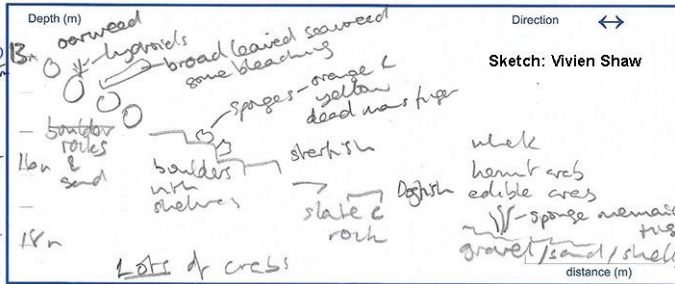 Depth (m)
Direction
Sketch: Vivien Shaw
13m
oarweed
hydroids
broad leaved seaweed
some bleaching
sponges - orange &
yellow
dead mans finger
boulder
rocks
&
sand
16m
boulders
with
shelves
starfish
slate &
rock
Dogfish
whelk
hermit crab
edible crabs
sponge
gravel/sand/shell
18m
Lots of crabs
distance (m)